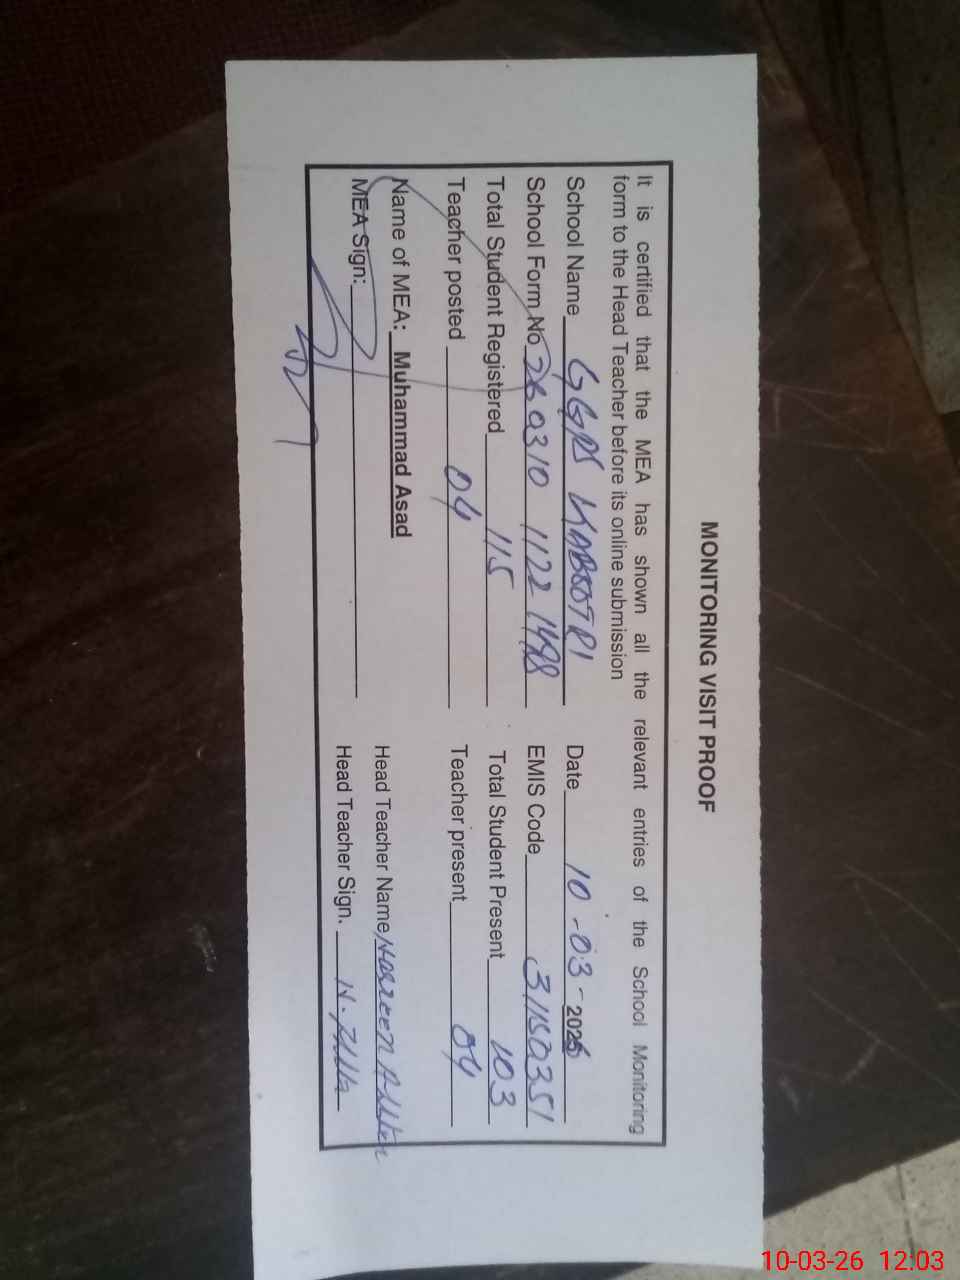 MONITORING VISIT PROOF
It is certified that the MEA has shown all the relevant entries of the School Monitoring
form to the Head Teacher before its online submission
School Name GGPS KABOOTRI Date 10-03-2026
School Form No 260310 1122 1498 EMIS Code 31150351
Total Student Registered 115 Total Student Present 103
Teacher posted 04 Teacher present 04
Name of MEA: Muhammad Asad Head Teacher Name Nasreen Akhter
MEA Sign: Head Teacher Sign.
10-03-26 12:03